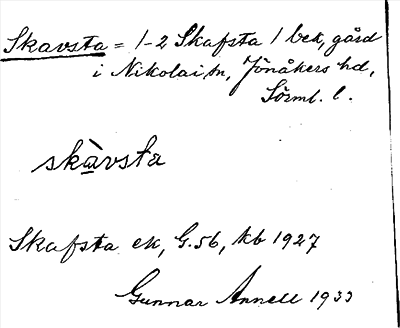 Skavsta = 1-2 Skafsta / bek, gård
i Nikolai sn, Jönåkers hd,
Sörml. l.
skàvsta
Skafsta ek, G.56, kb 1927
Gunnar Annell 1933